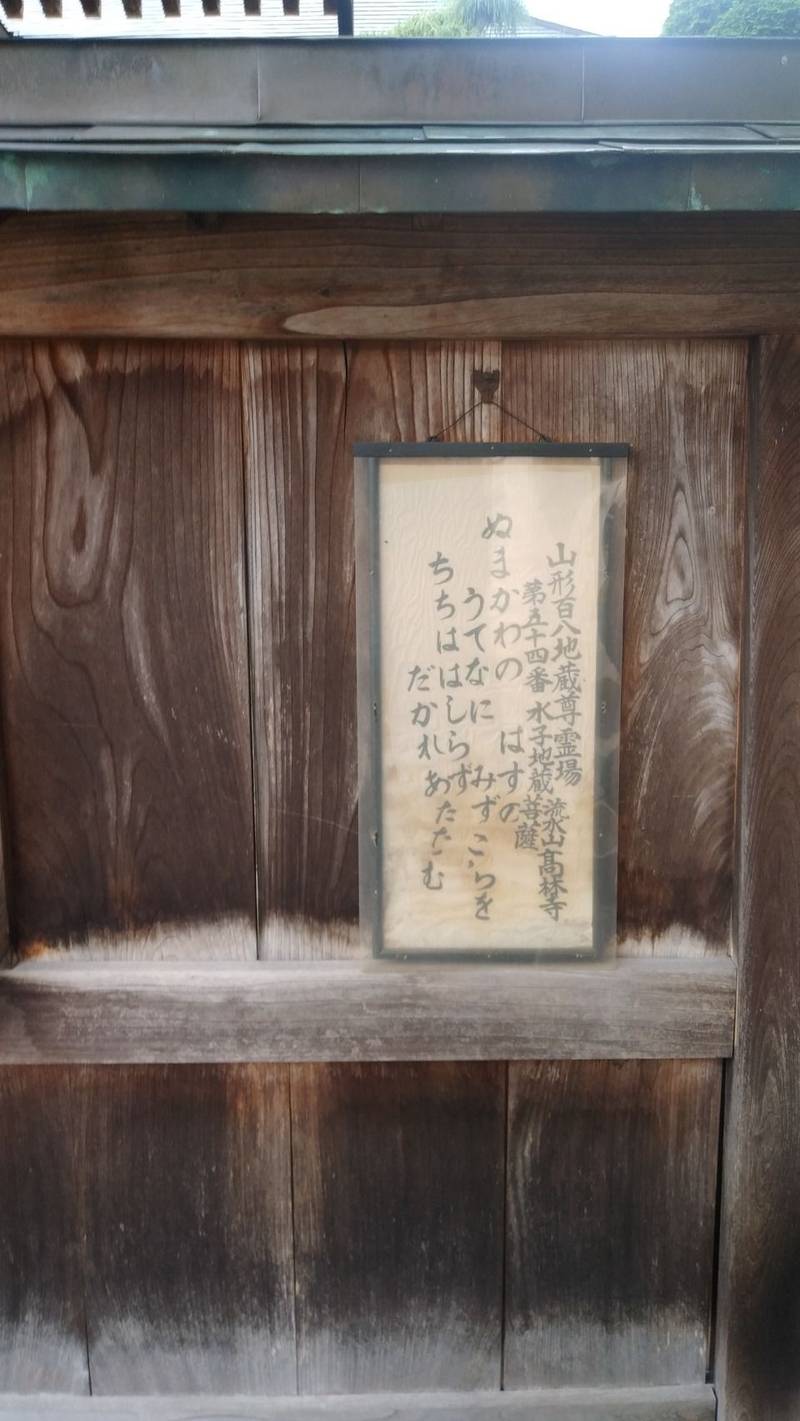 山形百八地蔵尊霊場 流水山高林寺
第五十四番 水子地蔵菩薩
ぬまかわの はすの
うてなに みずこらを
ちちははしらず
だかれあたたむ